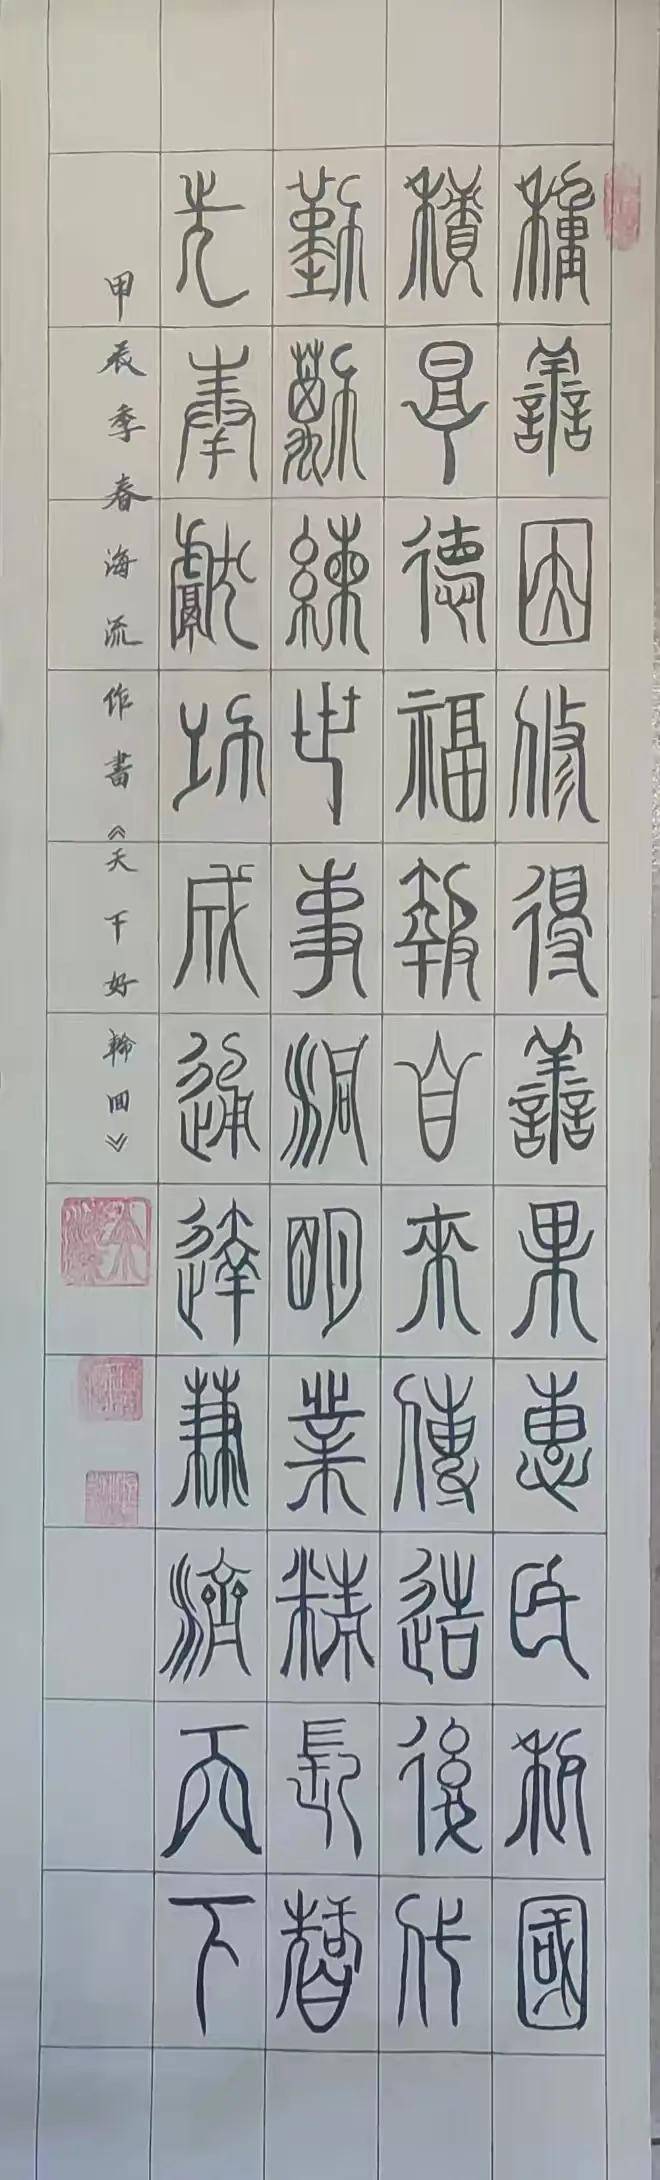 種善因修得善果惠民利國
積厚德福報自來傳造後代
勤勞練中事洞明業精長智
先奉獻功成通達兼濟天下
甲辰季春海流作書《天下好輪回》